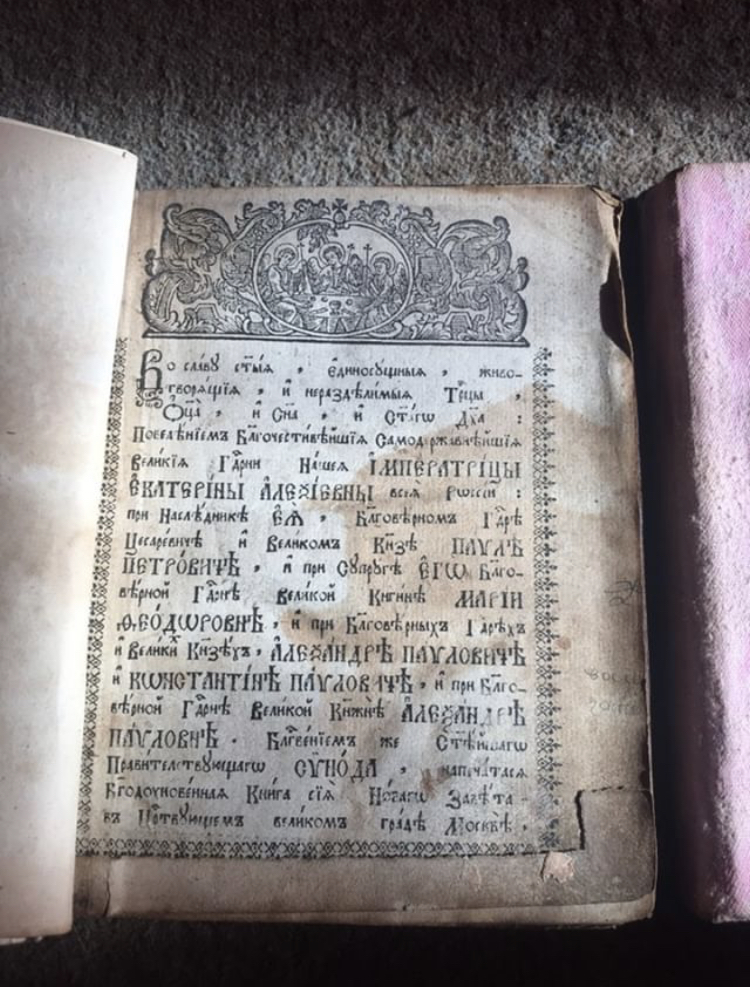 Во славу ст҃ыѧ, єдиносꙋщныѧ, живо-
творѧщїѧ, и нераздѣлимыѧ Трⷪ҇цы,
Ѻц҃а, и Сн҃а, и Ст҃агѡ Дх҃а:
Повелѣнїемъ Благочестивѣйшїѧ Самодержавнѣйшїѧ
великїѧ Гдⷭ҇рни Нашеѧ ІМПЕРАТРІЦЫ
ЄКАТЕРІНЫ АЛЕѮІЕВНЫ всеѧ Рѡссїи:
при Наслѣдникѣ ЄѦ, Благовѣрномъ Гдⷭ҇рѣ
Цесаревичѣ и Великомъ Кнѕ҃ѣ ПАѴЛѢ
ПЕТРОВИЧѢ, и при Сꙋпрꙋгѣ ЄГѠ Благо-
вѣрной Гдⷭ҇рнѣ Великой Кнгинѣ МАРІИ
ѲЕОДѠРОВНѢ, и при Благовѣрныхъ Гдⷭ҇рѣхъ
и Великихъ Кнѕ҃ѣхъ, АЛЕѮАНДРѢ ПАѴЛОВИЧѢ
и КѠНСТАНТІНѢ ПАѴЛОВИЧѢ, и при Благо-
вѣрной Гдⷭ҇рнѣ Великой Кнжнѣ АЛЕѮАНДРѢ
ПАѴЛОВНѢ. Блгⷭ҇венїемъ же Ст҃ѣйшагѡ
Правительствꙋющагѡ СѴНОДА, напечатасѧ
Бг҃одꙋхновеннаѧ Книга сїѧ Новагѡ Завѣта
въ Црⷭ҇твꙋющемъ великомъ градѣ Москвѣ,